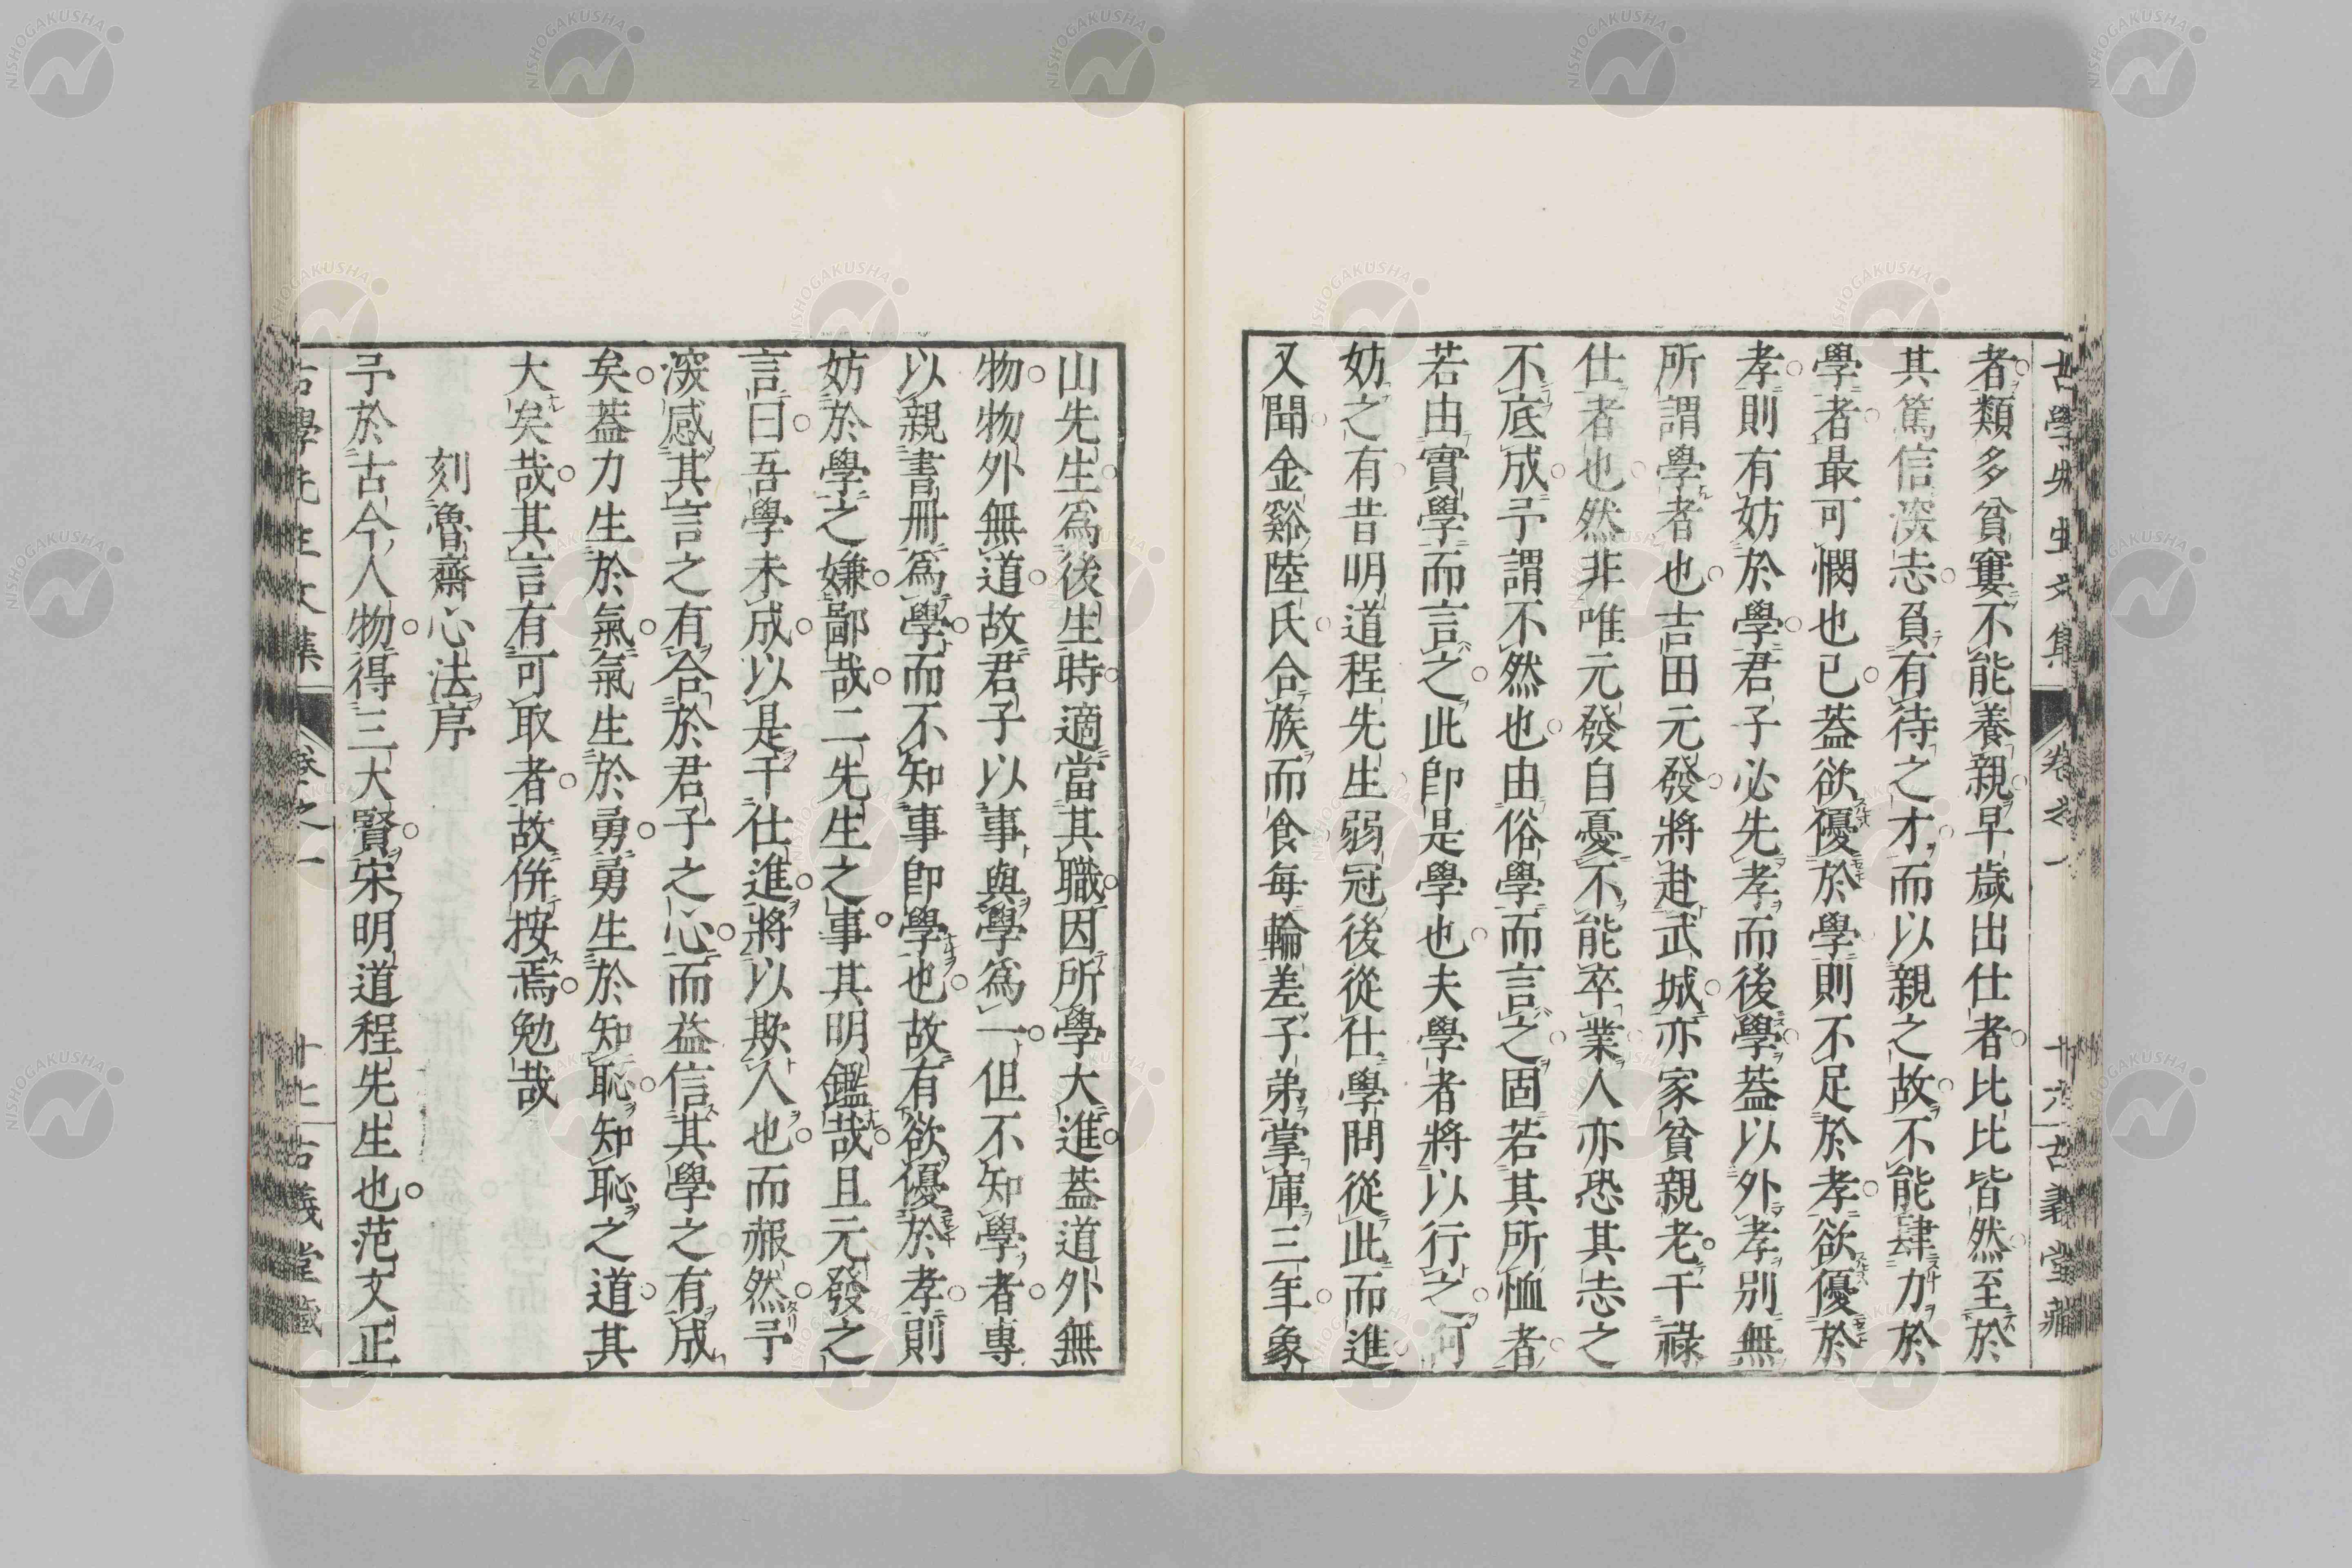 古學先生文集 卷之一 古義堂藏
者類多貧窶不能養親早歲出仕者比比皆然至於
其篤信深志負有待之才而以親之故不能肆力於
學者最可憫也已蓋欲優於學則不足於孝欲優於
孝則有妨於學君子必先孝而後學蓋以外孝別無
所謂學者也吉田元發將赴武城亦家貧親老干祿
仕者也然非唯元發自憂不能卒業人亦恐其志之
不底成予謂不然也由俗學而言之固若其所恤者
若由實學而言之此卽是學也夫學者將以行之何
妨之有昔明道程先生弱冠後從仕學問從此而進
又聞金谿陸氏合族而食每輪差子弟掌庫三年象
山先生爲後生時適當其職因所學大進蓋道外無
物物外無道故君子以事與學爲一但不知學者專
以親書冊爲學而不知事卽學也故有欲優於孝則
妨於學之嫌鄙哉二先生之事其明鑑哉且元發之
言曰吾學未成以是干仕進將以欺人也而赧然予
深感其言之有合於君子之心而益信其學之有成
矣蓋力生於氣氣生於勇勇生於知恥知恥之道其
大矣哉其言有可取者故併按焉勉哉
刻魯齋心法序
予於古今人物得三大賢宋明道程先生也范文正
古學先生文集 卷之一 十七 古義堂藏